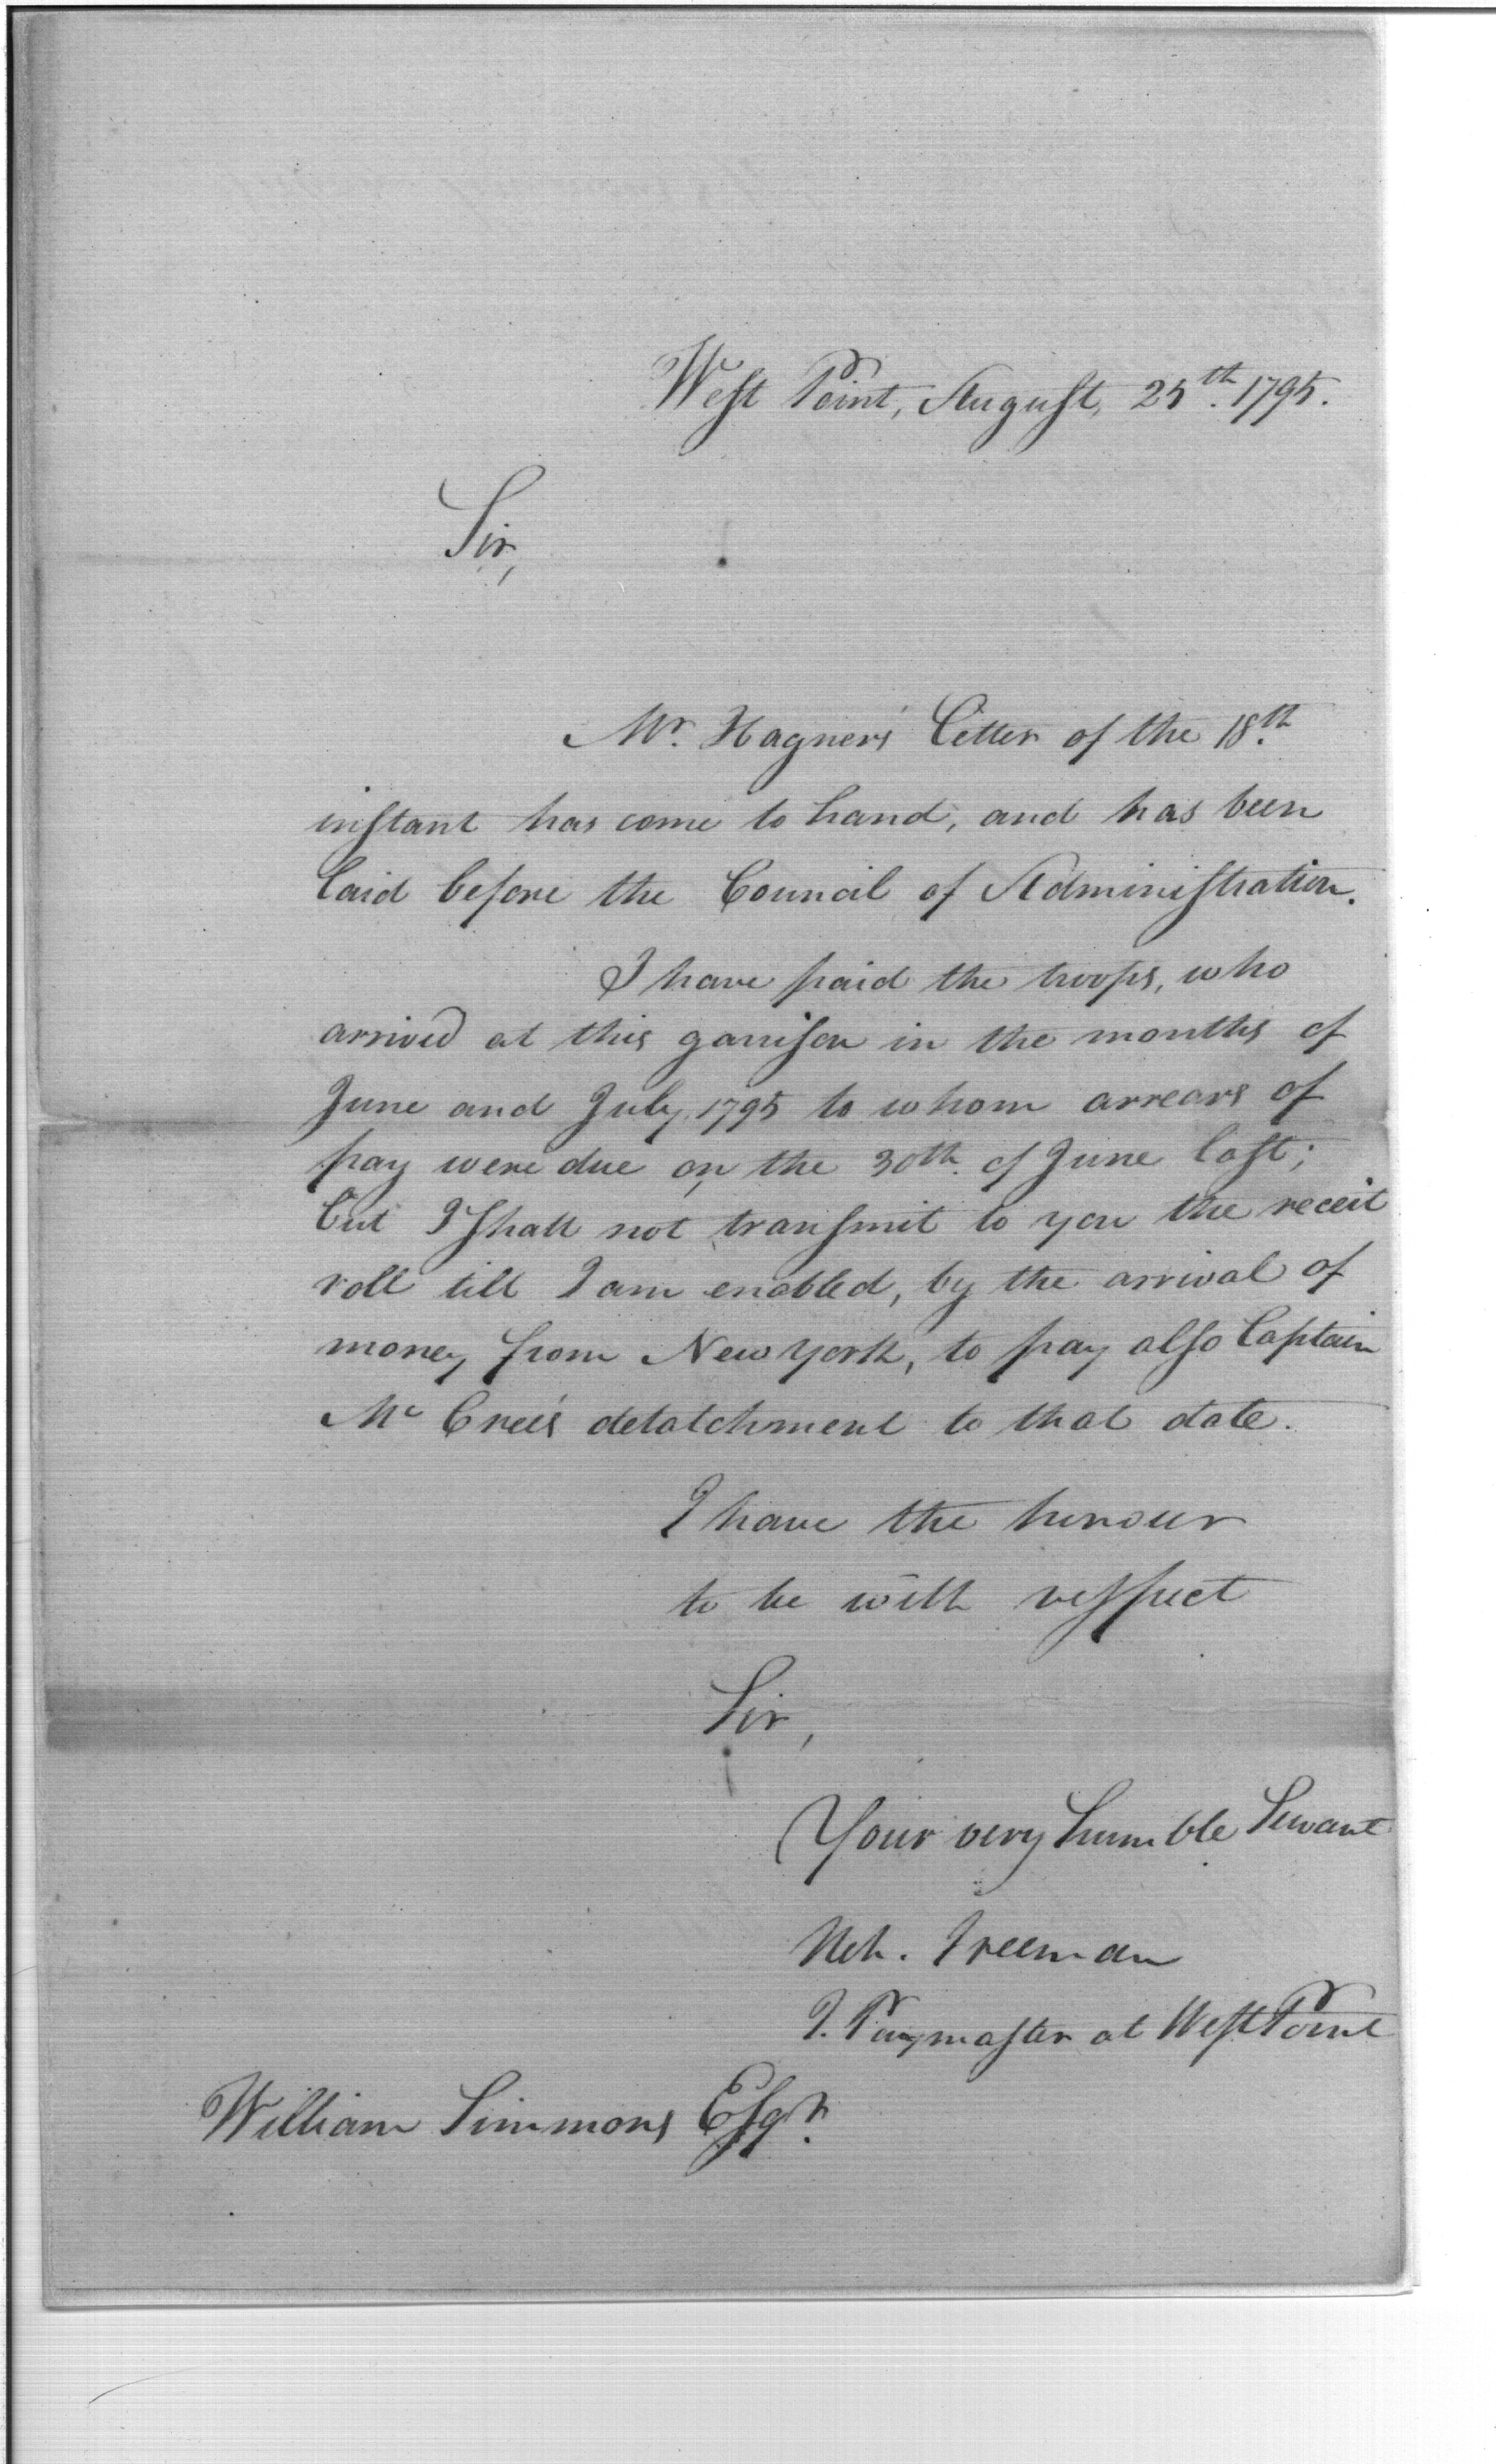 West Point, August, 25th. 1795.
Sir,
Mr. Hagner's Letter of the 18th.
instant has come to hand, and has been
laid before the Council of Administration.
I have paid the troops, who
arrived at this garrison in the months of
June and July, 1795 to whom arrears of
pay were due on the 30th. of June last;
but I shall not transmit to you the receit
roll till I am enabled, by the arrival of
money from New York, to pay also Captain
Mc Cree's detatchment to that date.
I have the honour
to be with respect
Sir,
Your very humble Servant
Neh. Freeman
J. Paymaster at West Point
William Simmons Esqr.